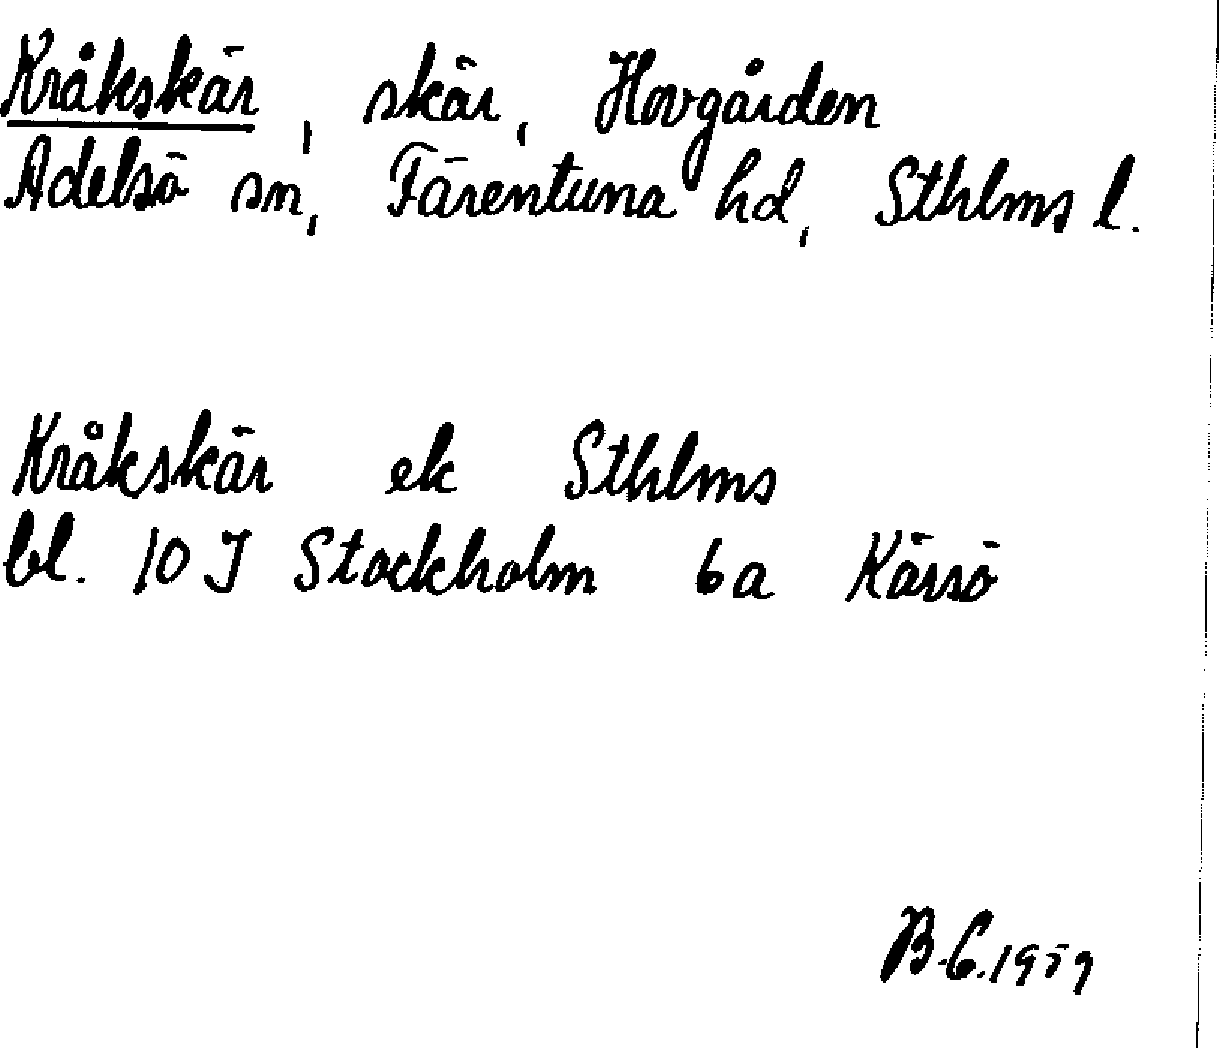 Kråkskär, skär, Hovgården
Adelsö sn, Färentuna hd, Sthlms l.
Kråkskär ek Sthlms
bl. 10 J Stockholm 6a Kärsö
B.C. 1959